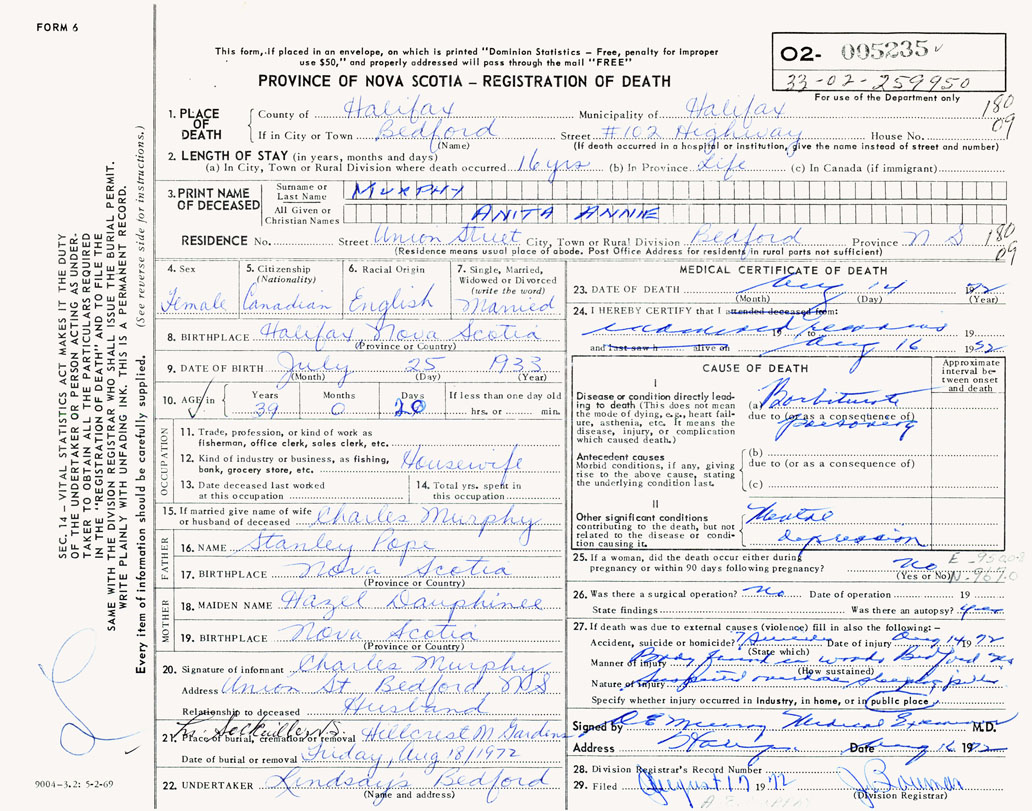 FORM 6
This form, if placed in an envelope, on which is printed "Dominion Statistics – Free, penalty for improper
use $50," and properly addressed will pass through the mail "FREE"
PROVINCE OF NOVA SCOTIA – REGISTRATION OF DEATH
O2- 005235
33-02-259950
For use of the Department only
180
09
1. PLACE OF DEATH
County of Halifax Municipality of Halifax
If in City or Town Bedford Street #102 Highway House No.
(Name) (If death occurred in a hospital or institution, give the name instead of street and number)
2. LENGTH OF STAY (in years, months and days)
(a) In City, Town or Rural Division where death occurred 16 yrs (b) In Province Life (c) In Canada (if immigrant)
3. PRINT NAME OF DECEASED
Surname or Last Name MURPHY
All Given or Christian Names ANITA ANNIE
RESIDENCE No. Street Union Street City, Town or Rural Division Bedford Province N S
180
09
(Residence means usual place of abode. Post Office Address for residents in rural parts not sufficient)
4. Sex
Female
5. Citizenship (Nationality)
Canadian
6. Racial Origin
English
7. Single, Married, Widowed or Divorced (write the word)
Married
8. BIRTHPLACE Halifax Nova Scotia
(Province or Country)
9. DATE OF BIRTH July 25 1933
(Month) (Day) (Year)
10. AGE in Years Months Days If less than one day old
39 0 20 hrs. or min.
OCCUPATION
11. Trade, profession, or kind of work as
fisherman, office clerk, sales clerk, etc.
12. Kind of industry or business, as fishing,
bank, grocery store, etc. Housewife
13. Date deceased last worked
at this occupation
14. Total yrs. spent in
this occupation
15. If married give name of wife
or husband of deceased Charles Murphy
FATHER
16. NAME Stanley Pope
17. BIRTHPLACE Nova Scotia
(Province or Country)
MOTHER
18. MAIDEN NAME Hazel Dauphinee
19. BIRTHPLACE Nova Scotia
(Province or Country)
20. Signature of informant Charles Murphy
Address Union St. Bedford NS
Relationship to deceased Husband
21. Place of burial, cremation or removal Hillcrest M Gardens
Date of burial or removal Friday, Aug 18/1972
22. UNDERTAKER Lindsay's Bedford
(Name and address)
MEDICAL CERTIFICATE OF DEATH
23. DATE OF DEATH Aug 14 1972
(Month) (Day) (Year)
24. I HEREBY CERTIFY that I attended deceased from:
examined remains 19 to 19
and last saw h alive on Aug 16 1972
CAUSE OF DEATH
Approximate interval between onset and death
I
Disease or condition directly leading to death (This does not
mean the mode of dying, e.g., heart failure, asthenia, etc. It means the
disease, injury, or complication
which caused death.)
(a) Barbiturate
due to (or as a consequence of)
poisoning
Antecedent causes
Morbid conditions, if any, giving
rise to the above cause, stating
the underlying condition last.
(b)
due to (or as a consequence of)
(c)
II
Other significant conditions
contributing to the death, but not
related to the disease or condition causing it.
Mental
depression
25. If a woman, did the death occur either during
pregnancy or within 90 days following pregnancy? No
(Yes or No)
26. Was there a surgical operation? no Date of operation 19
State findings Was there an autopsy? yes
27. If death was due to external causes (violence) fill in also the following: –
Accident, suicide or homicide? ? Suicide Date of injury Aug 14 1972
(State which)
Manner of injury Body found in woods Bedford NS
(How sustained)
Nature of injury Suspected overdose sleeping pills
Specify whether injury occurred in industry, in home, or in public place
Signed by Medical Examiner M.D.
Address Date Aug 16 1972
28. Division Registrar's Record Number
29. Filed August 17 1972
(Division Registrar)
SEC. 14 – VITAL STATISTICS ACT MAKES IT THE DUTY
OF THE UNDERTAKER OR PERSON ACTING AS UNDERTAKER TO OBTAIN ALL THE PARTICULARS REQUIRED
IN THE "REGISTRATION OF DEATH" AND TO FILE THE
SAME WITH THE DIVISION REGISTRAR WHO SHALL ISSUE THE BURIAL PERMIT.
WRITE PLAINLY WITH UNFADING INK. THIS IS A PERMANENT RECORD.
Every item of information should be carefully supplied. (See reverse side for instructions.)
9004-3.2: 5-2-69